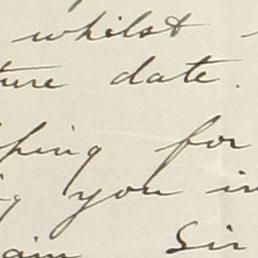 whilst
ture date.
ping for
ing you in
am Sir